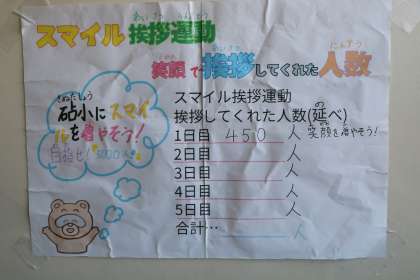 スマイル挨拶運動
笑顔で挨拶してくれた人数
きぬたしょう
砧小にスマイ
ルを増やそう!
目指せ!3000人
スマイル挨拶運動
挨拶してくれた人数(延べ)
1日目 450 人 笑顔を増やそう!
2日目 人
3日目 人
4日目 人
5日目 人
合計… 人